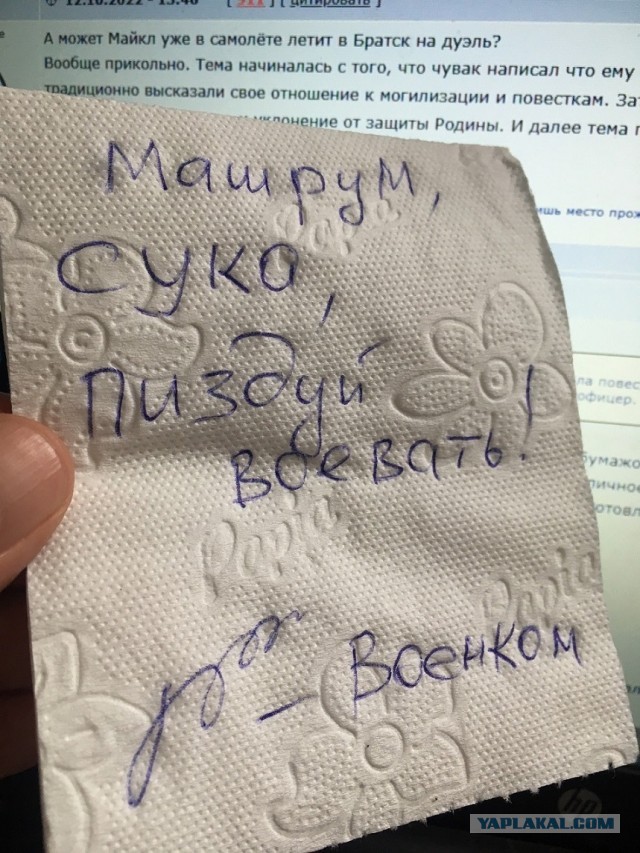 12.10.2022 - 13:46 [ 911 ] [ цитировать ]
А может Майкл уже в самолёте летит в Братск на дуэль?
Вообще прикольно. Тема начиналась с того, что чувак написал что ему
традиционно высказали свое отношение к могилизации и повесткам. Зат
уклонение от защиты Родины. И далее тема п
ишь место прож
ла повес
офицер.
бумажо
личное
отовл
Машрум,
сука,
пиздуй
воевать!
Papia
Papia
Papia
– Военком
hp
YAPLAKAL.COM